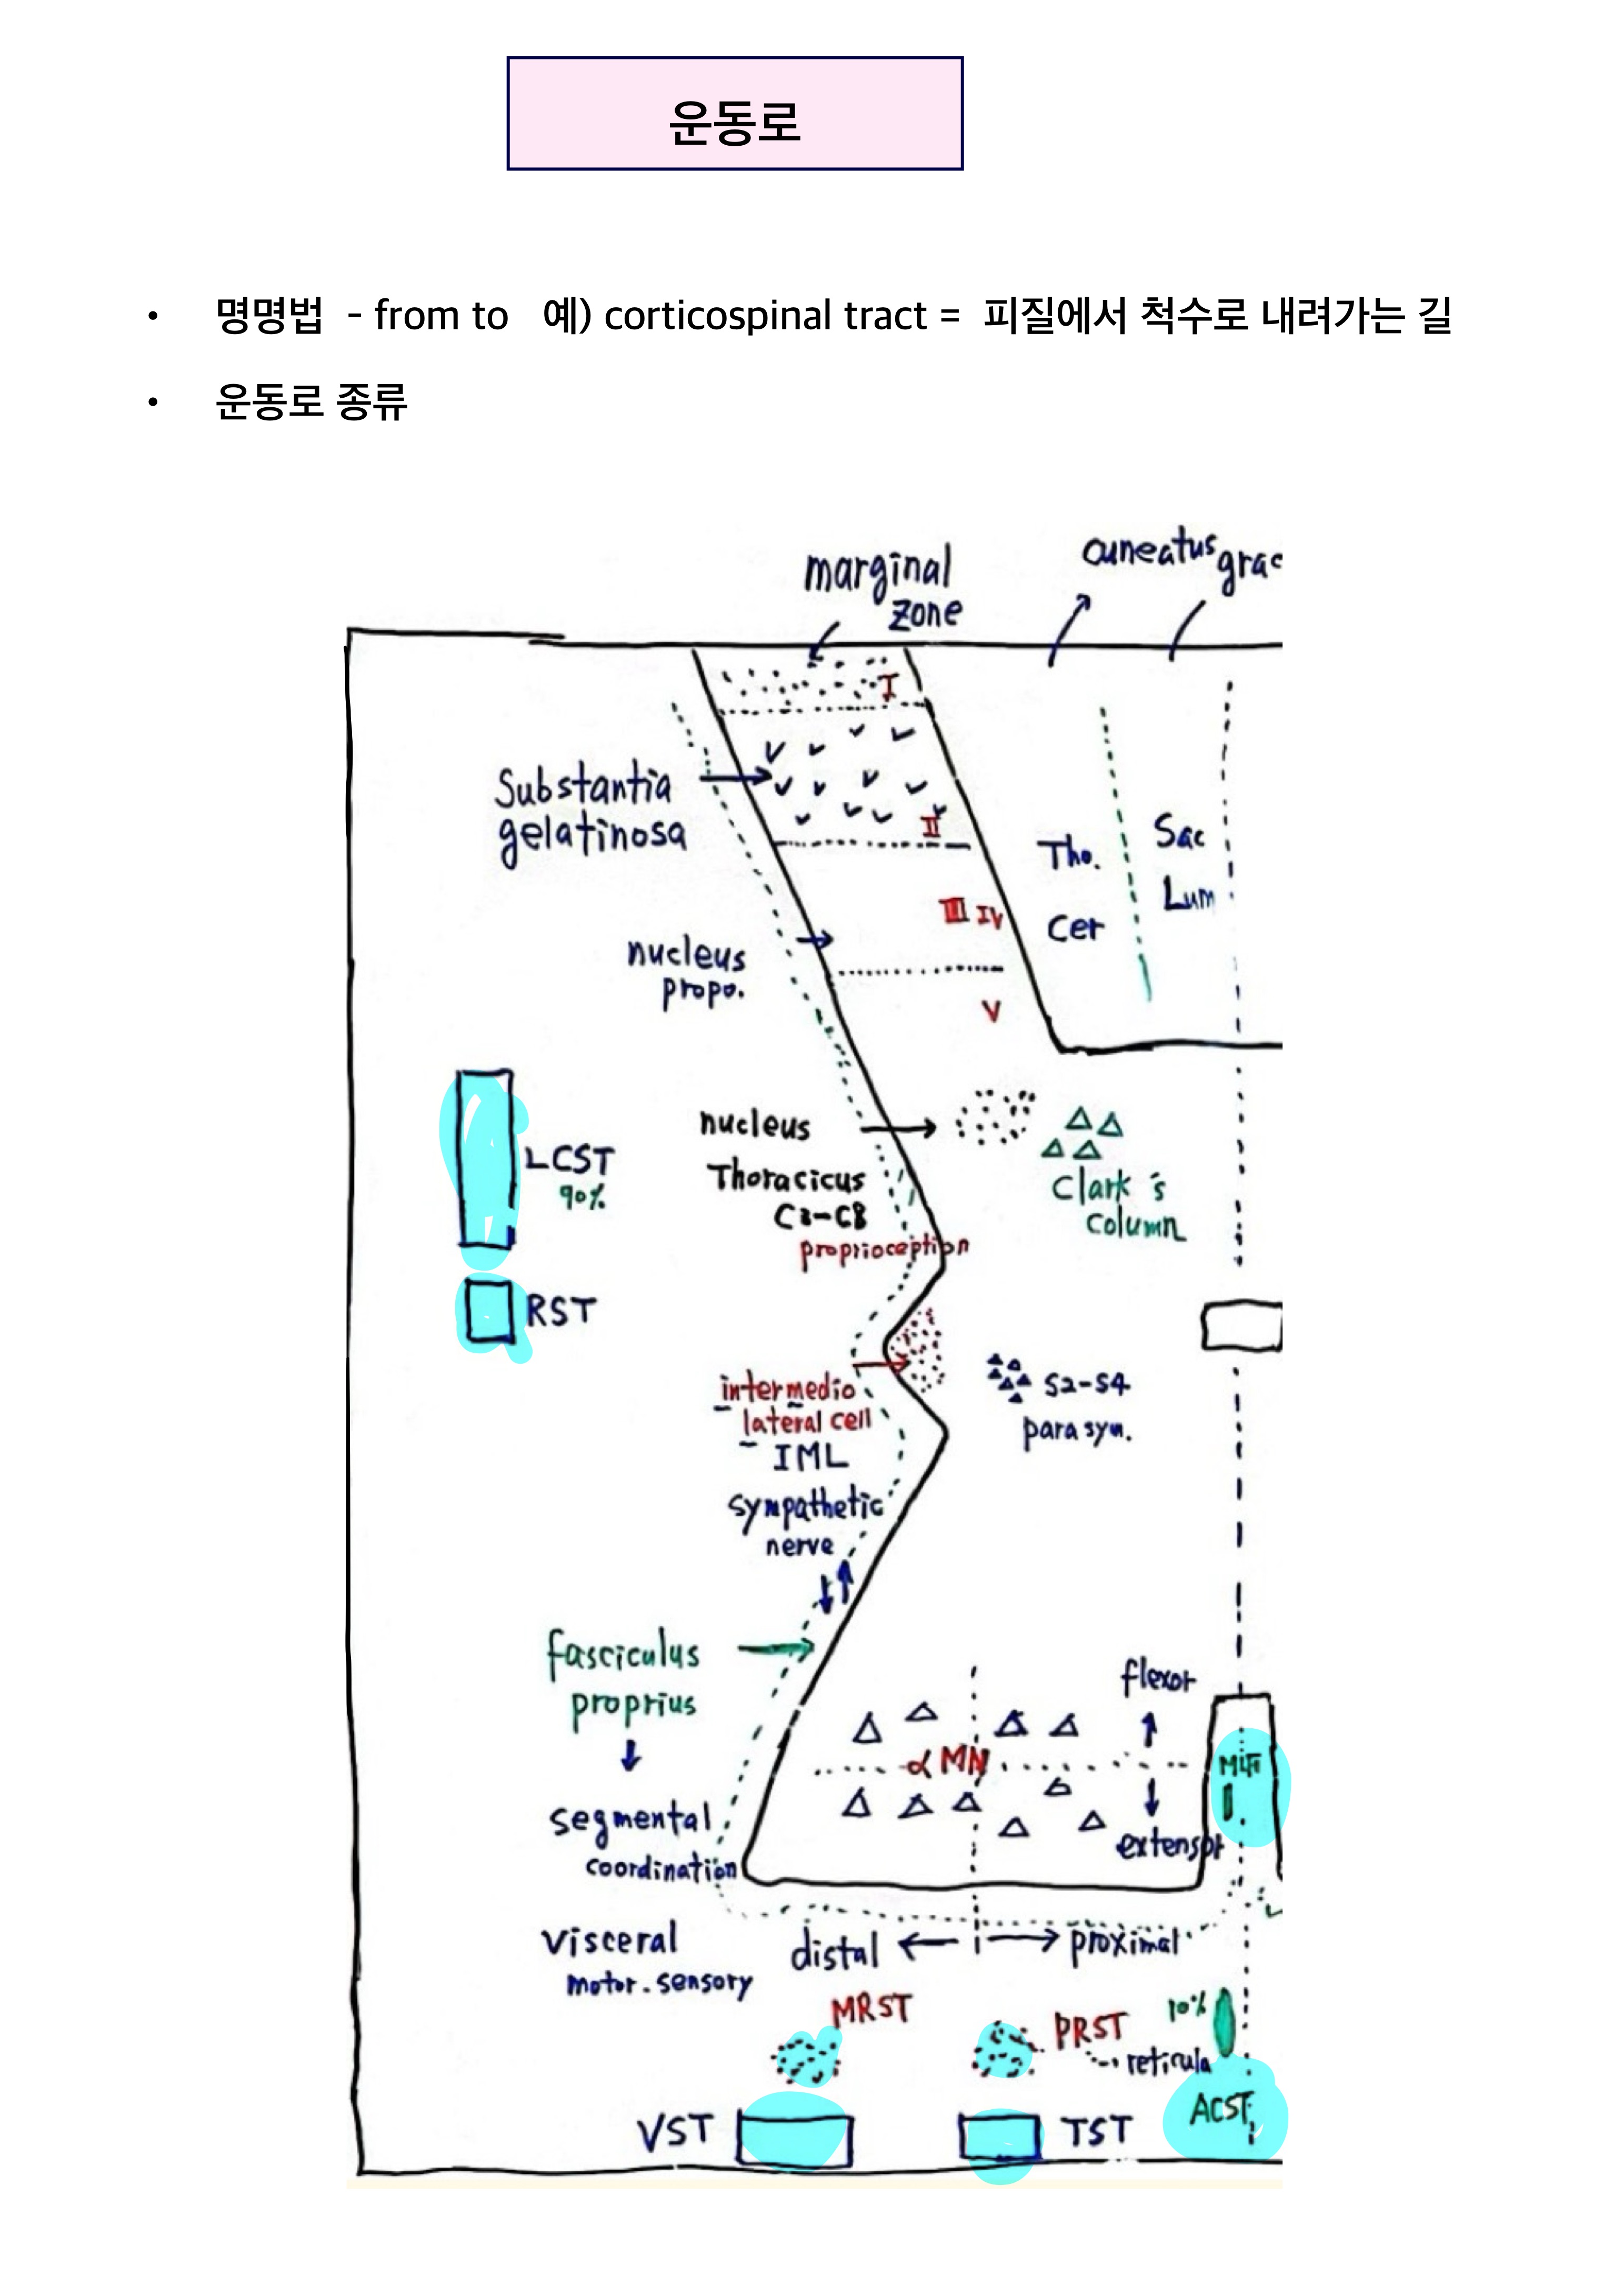 운동로
• 명명법 - from to 예) corticospinal tract = 피질에서 척수로 내려가는 길
• 운동로 종류
marginal
zone
cuneatus
grac
I
Substantia
gelatinosa
II
Tho.
Cer
Sac
Lum
III IV
nucleus
propo.
V
LCST
90%
RST
nucleus
Thoracicus
C3-C8
proprioception
Clark's
column
intermedio
lateral cell
IML
sympathetic
nerve
S2-S4
parasyn.
fasciculus
proprius
segmental
coordination
flexor
αMN
extensor
MLF
visceral
motor. sensory
distal
proximal
MRST
PRST
reticula
10%
ACST
VST
TST